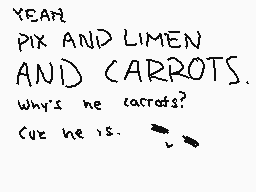 YEAH
PIX AND LIMEN
AND CARROTS.
Why's he carrots?
Cuz he is.